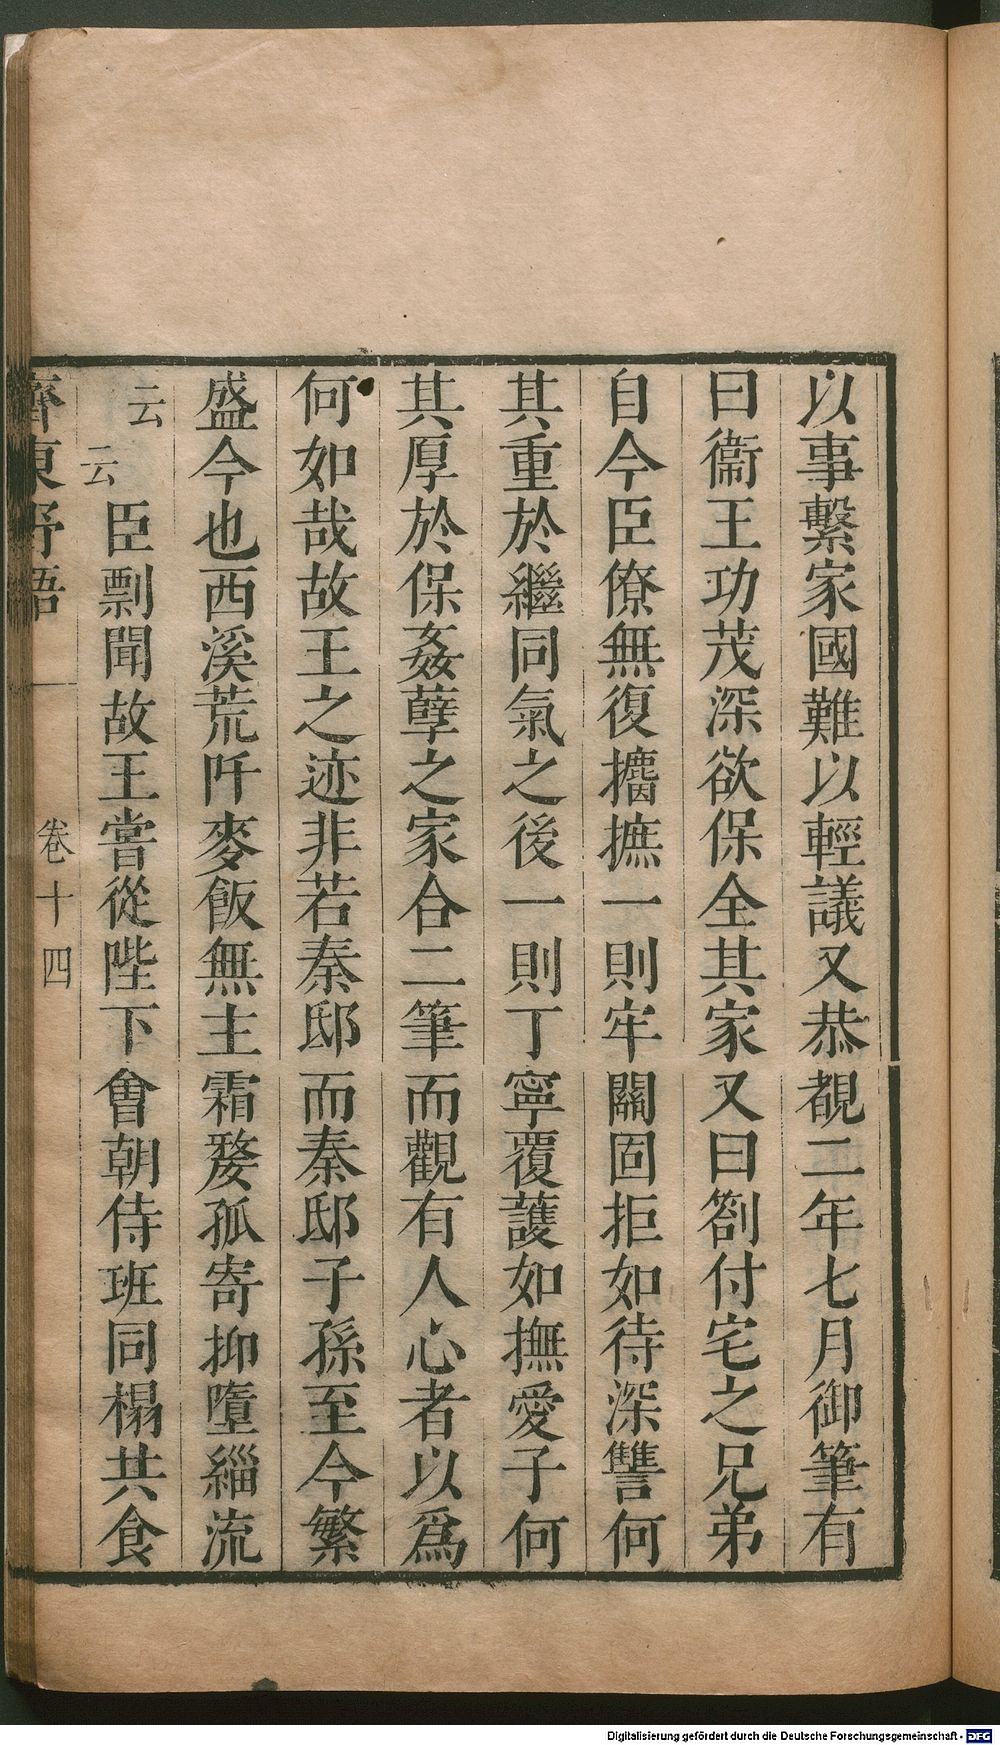 以事繫家國難以輕議又恭覩二年七月御筆有
曰衞王功茂深欲保全其家又曰劄付宅之兄弟
自今臣僚無復攟摭一則牢關固拒如待深讐何
其重於繼同氣之後一則丁寧覆護如撫愛子何
其厚於保姦孽之家合二筆而觀有人心者以爲
何如哉故王之迹非若秦邸而秦邸子孫至今繁
盛今也西溪荒阡麥飯無主霜婺孤寄抑墮緇流
云云臣剽聞故王嘗從陛下會朝侍班同榻共食
齊東野語
卷十四
Digitalisierung gefördert durch die Deutsche Forschungsgemeinschaft - DFG